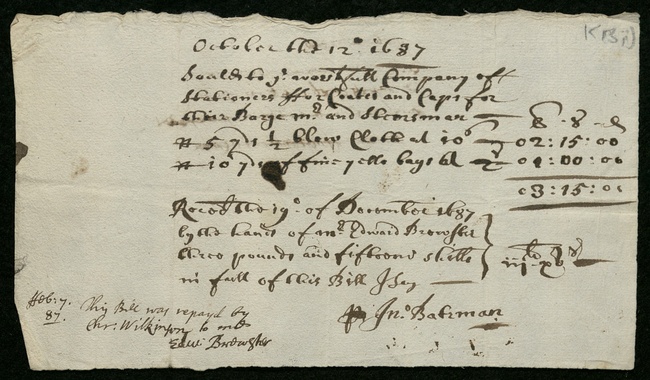 October the 12o 1687
Sould to ye worshfull Company off
Stationers ffor Coates and Caps for
their Barge mr and Steersman
£ s d
5 yds 1/2 blew Cloth at 10s 02:15:00
10 yds off fine yello bays 01:00:00
03:15:00
Receed the 19o of December 1687
by the hands of mr Edward Brewster
three pounds and fifteene shills
in full of this Bill I say
iij xv
p Jno Bateman
Feb: 7. 87.
This Bill was repayd by
Chr: Wilkinson to me
Edw: Brewster